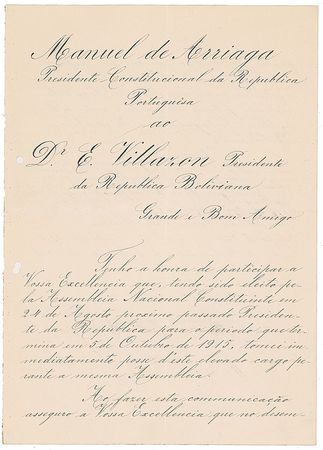 Manuel de Arriaga
Presidente Constitucional da Republica
Portuguesa
ao
Dr E. Villazon Presidente
da Republica Boliviana
Grande e Bom Amigo
Tenho a honra de participar a
Vossa Excellencia que, tendo sido eleito pe-
la Assembleia Nacional Constituinte em
24 de Agosto proximo passado Presiden-
te da Republica para o periodo que ter-
mina em 5 de Outubro de 1915, tomei im-
mediatamente posse d'este elevado cargo pe-
rante a mesma Assembleia.
Ao fazer esta communicação
asseguro a Vossa Excellencia que no desem-